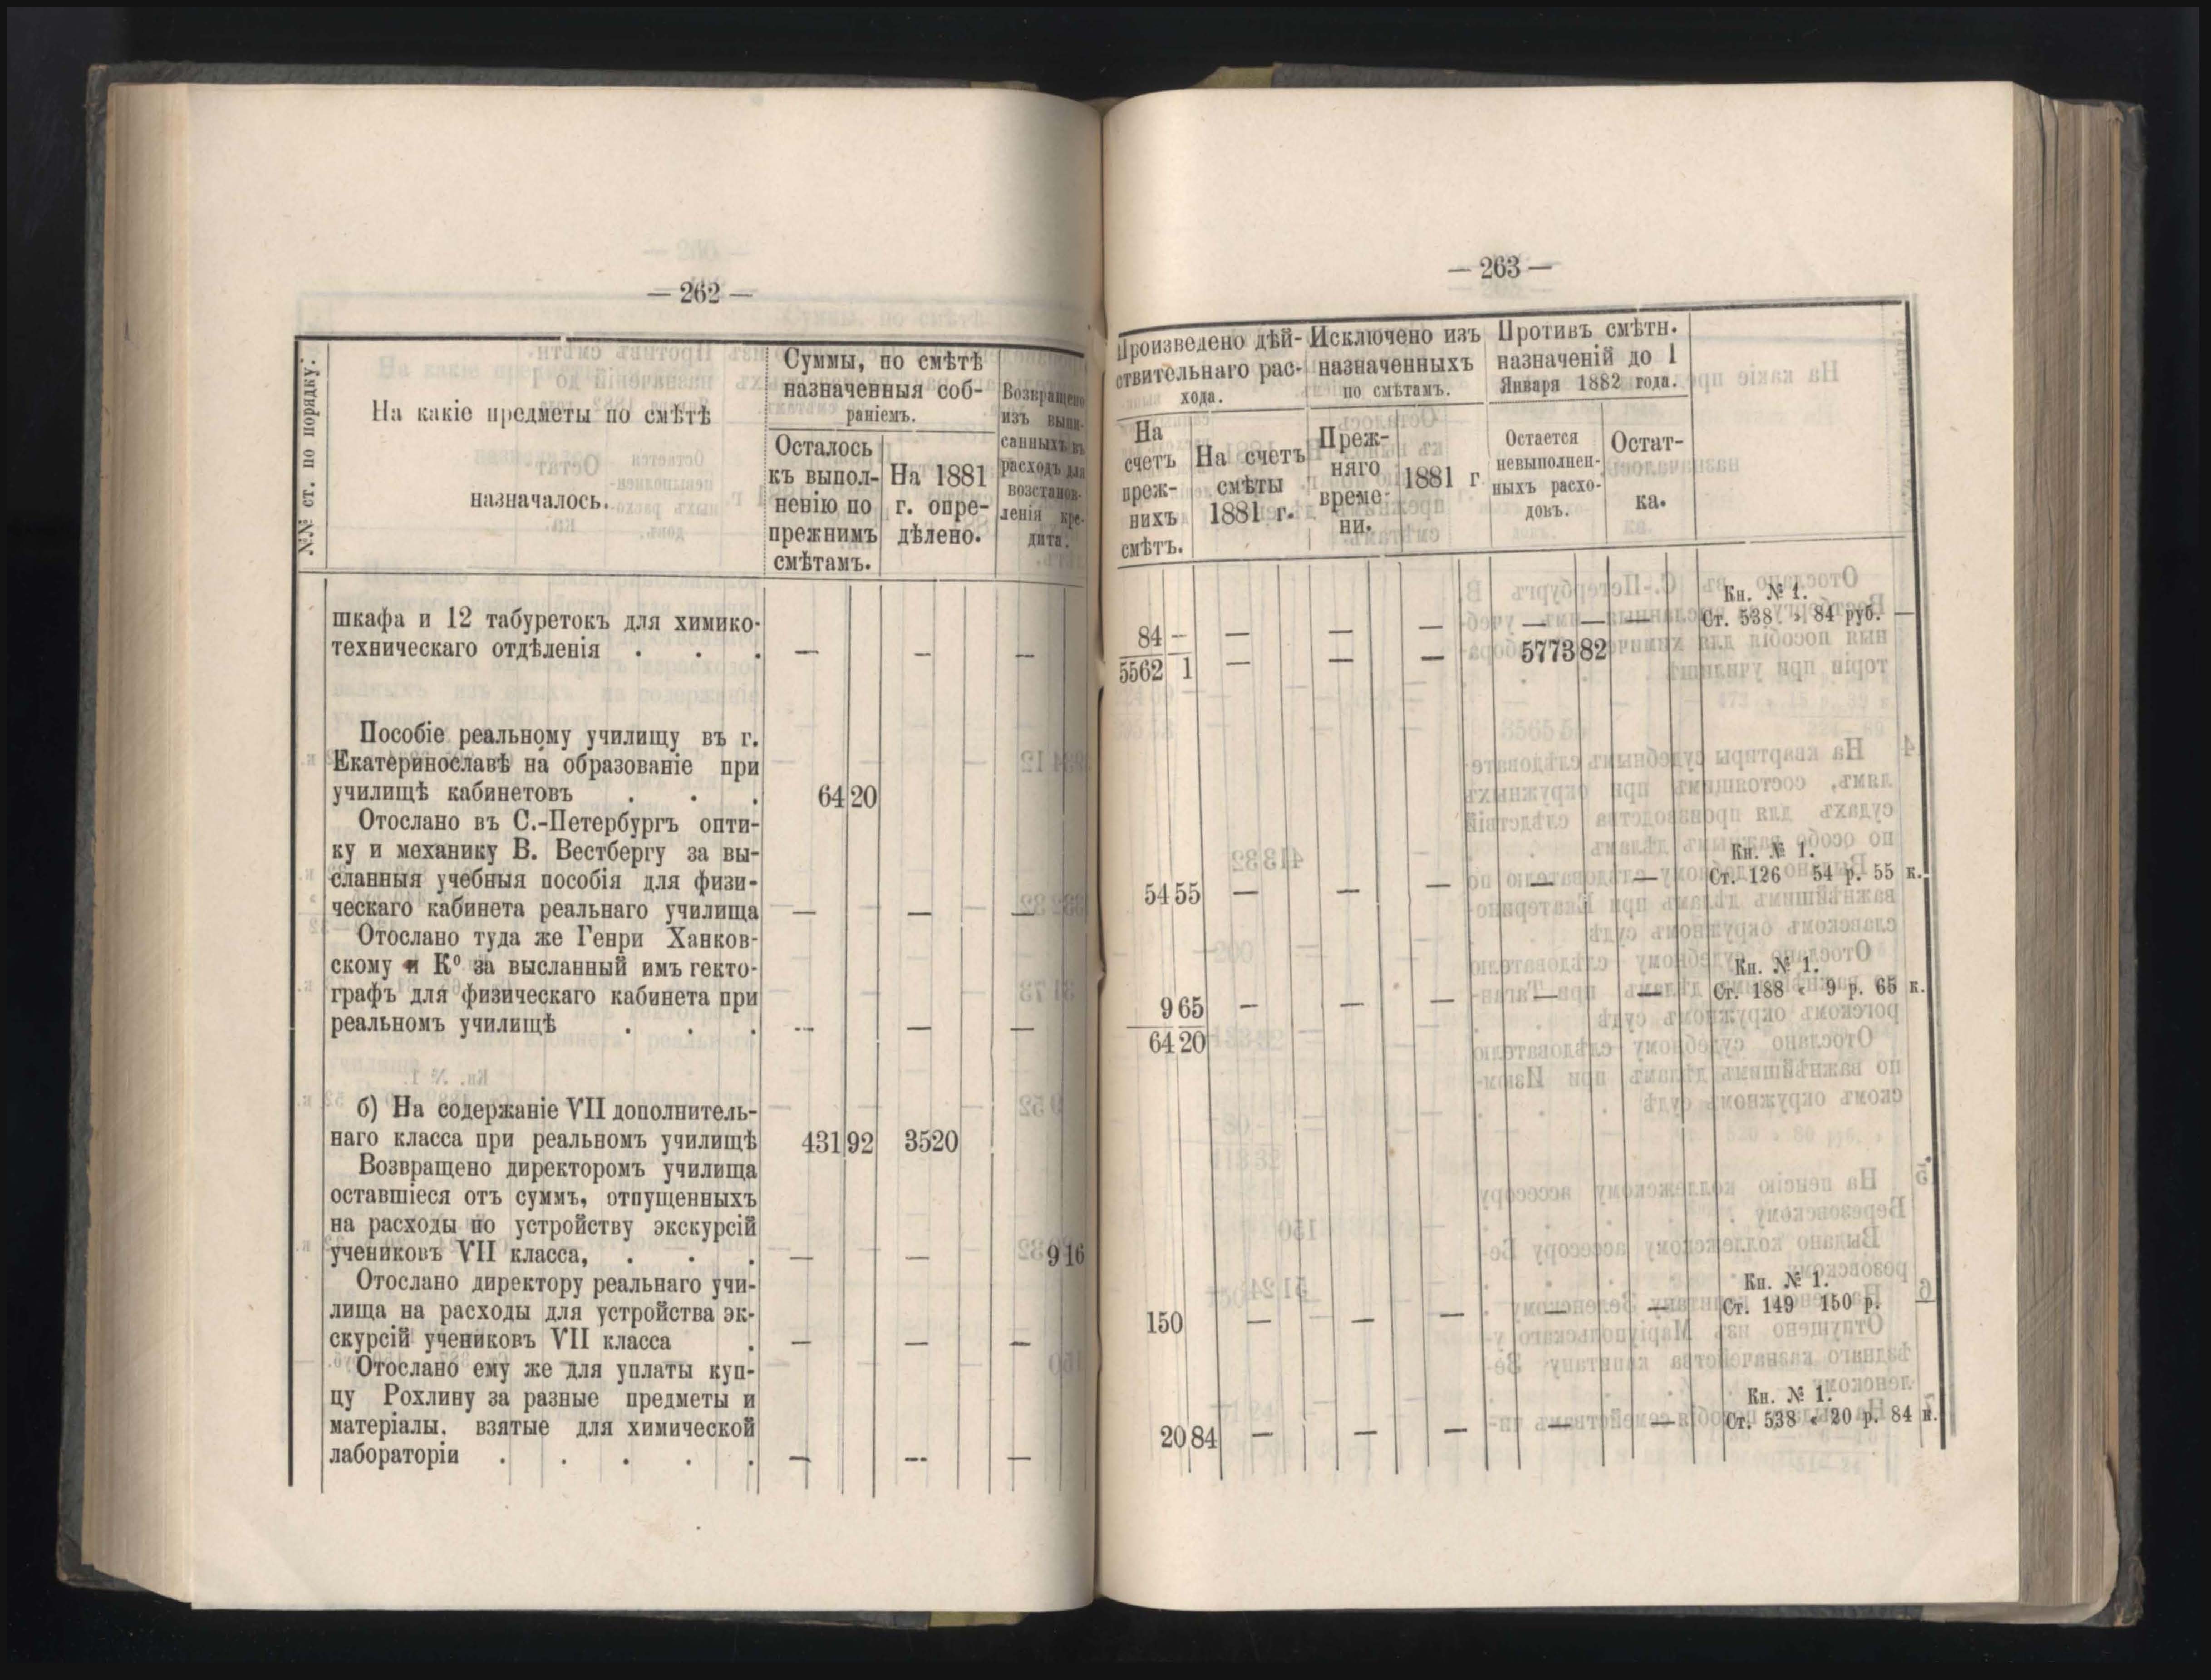 — 262 —
№№ ст. по порядку.
На какіе предметы по смѣтѣ
назначалось.
Суммы, по смѣтѣ
назначенныя соб-
раніемъ.
Осталось
къ выпол-
ненію по
прежнимъ
смѣтамъ.
На 1881
г. опре-
дѣлено.
Возвращено
изъ выпи-
санныхъ въ
расходъ для
возстанов-
ленія кре-
дита.
шкафа и 12 табуретокъ для химико-
техническаго отдѣленія . . . — — —
Пособіе реальному училищу въ г.
Екатеринославѣ на образованіе при
училищѣ кабинетовъ . . . 64 20
Отослано въ С.-Петербургъ опти-
ку и механику В. Вестбергу за вы-
сланныя учебныя пособія для физи-
ческаго кабинета реальнаго училища — — —
Отослано туда же Генри Ханков-
скому и К⁰ за высланный имъ гекто-
графъ для физическаго кабинета при
реальномъ училищѣ . . . — — —
б) На содержаніе VII дополнитель-
наго класса при реальномъ училищѣ 431 92 3520
Возвращено директоромъ училища
оставшіеся отъ суммъ, отпущенныхъ
на расходы по устройству экскурсій
учениковъ VII класса, . . . — — 9 16
Отослано директору реальнаго учи-
лища на расходы для устройства эк-
скурсій учениковъ VII класса . — — —
Отослано ему же для уплаты куп-
цу Рохлину за разные предметы и
матеріалы. взятые для химической
лабораторіи . . . . . — — —
— 263 —
Произведено дѣй-
ствительнаго рас-
хода.
Исключено изъ
назначенныхъ
по смѣтамъ.
Противъ смѣтн.
назначеній до 1
Января 1882 года.
На
счетъ
преж-
нихъ
смѣтъ.
На счетъ
смѣты
1881 г.
Преж-
няго
време-
ни.
1881 г
Остается
невыполнен-
ныхъ расхо-
довъ.
Остат-
ка.
Кн. № 1.
84 — — — — — — — Ст. 538 » 84 руб. —
5562 1 — — — 5773 82
Кн. № 1.
54 55 — — — — — Ст. 126 54 р. 55 к.
Кн. № 1.
9 65 — — — — — Ст. 188 « 9 р. 65 к.
64 20
Кн. № 1.
150 — — — — — Ст. 149 150 р. —
Кн. № 1.
20 84 — — — — — Ст. 538 « 20 р. 84 к.